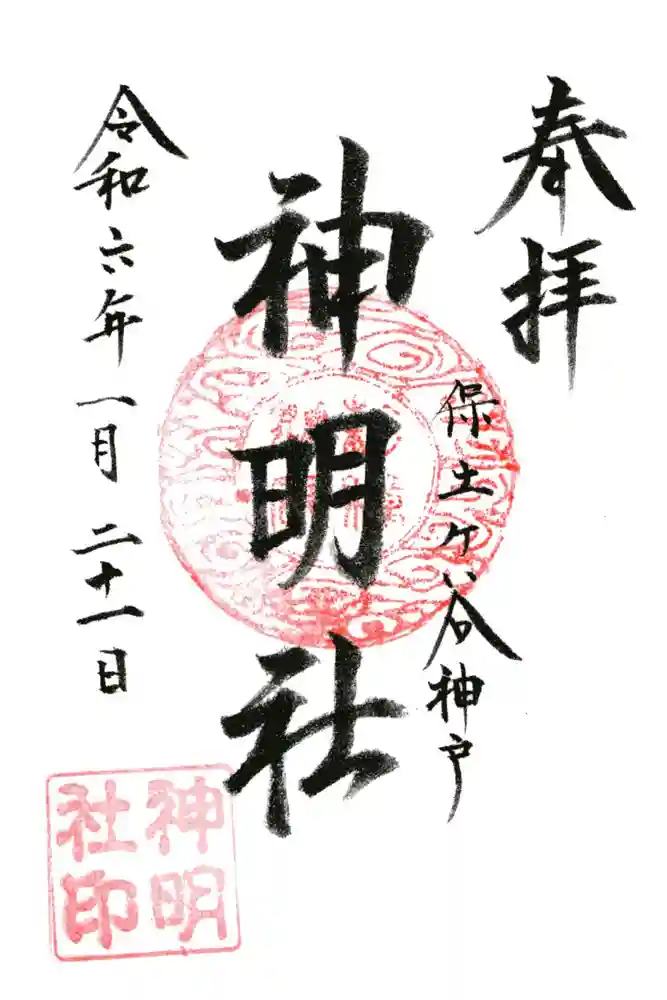 奉拝
保土ケ谷神戸
神明社
令和六年一月二十一日
神明
社印